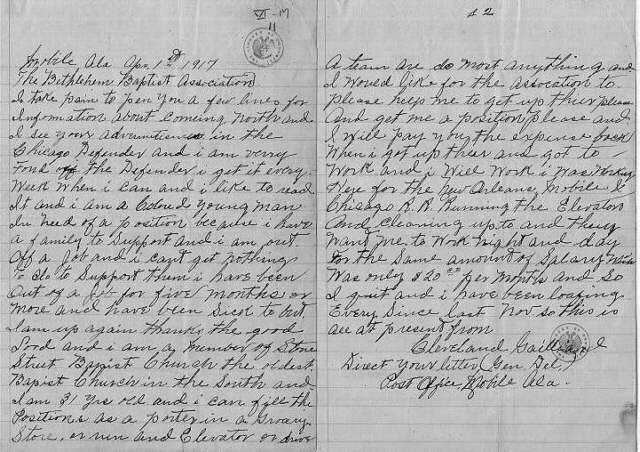 VI-M
11
Mobile Ala Apr 1st 1917
The Bethlehem Baptist Association
I take pain to pen you a few lines for
Information about coming North and
I see your in the
Chicago Defender and i am verry
Fond off the Defender i get it every
Week when i can and i like to read
It and i am a young man
In need of a position because i have
a family to support and i am out
off a job and i cant get nothing
to do to support them i have been
out of a job for five months or
more and have been sick to but
I am up again thanks the good
Lord and i am a member of Stone
Street Bapist Church the oldest
Bapist Church in the South and
I am 31 yrs old and i can fill the
Positions as a porter in a Grocery
Store. or run and Elevator or drive
42
A team are do most anything and
I would like for the association to
Please help me to get up their please
And get me a position please and
I will pay you the expense back
When i get up thear and got to
Work and i will work i was working
Here for the New Orleans, Mobile &
Chicago R.R. Running the Elevator
And cleaning up to and they
Want me to work night and day
For the same amount of Salary which
Was only $20.00 per months and so
I quit and i have been loafing
Every since last Nov so this is
all at present from
Cleveland Gaillard
Direct your letter (Gen Del.)
Post Office, Mobile Ala.